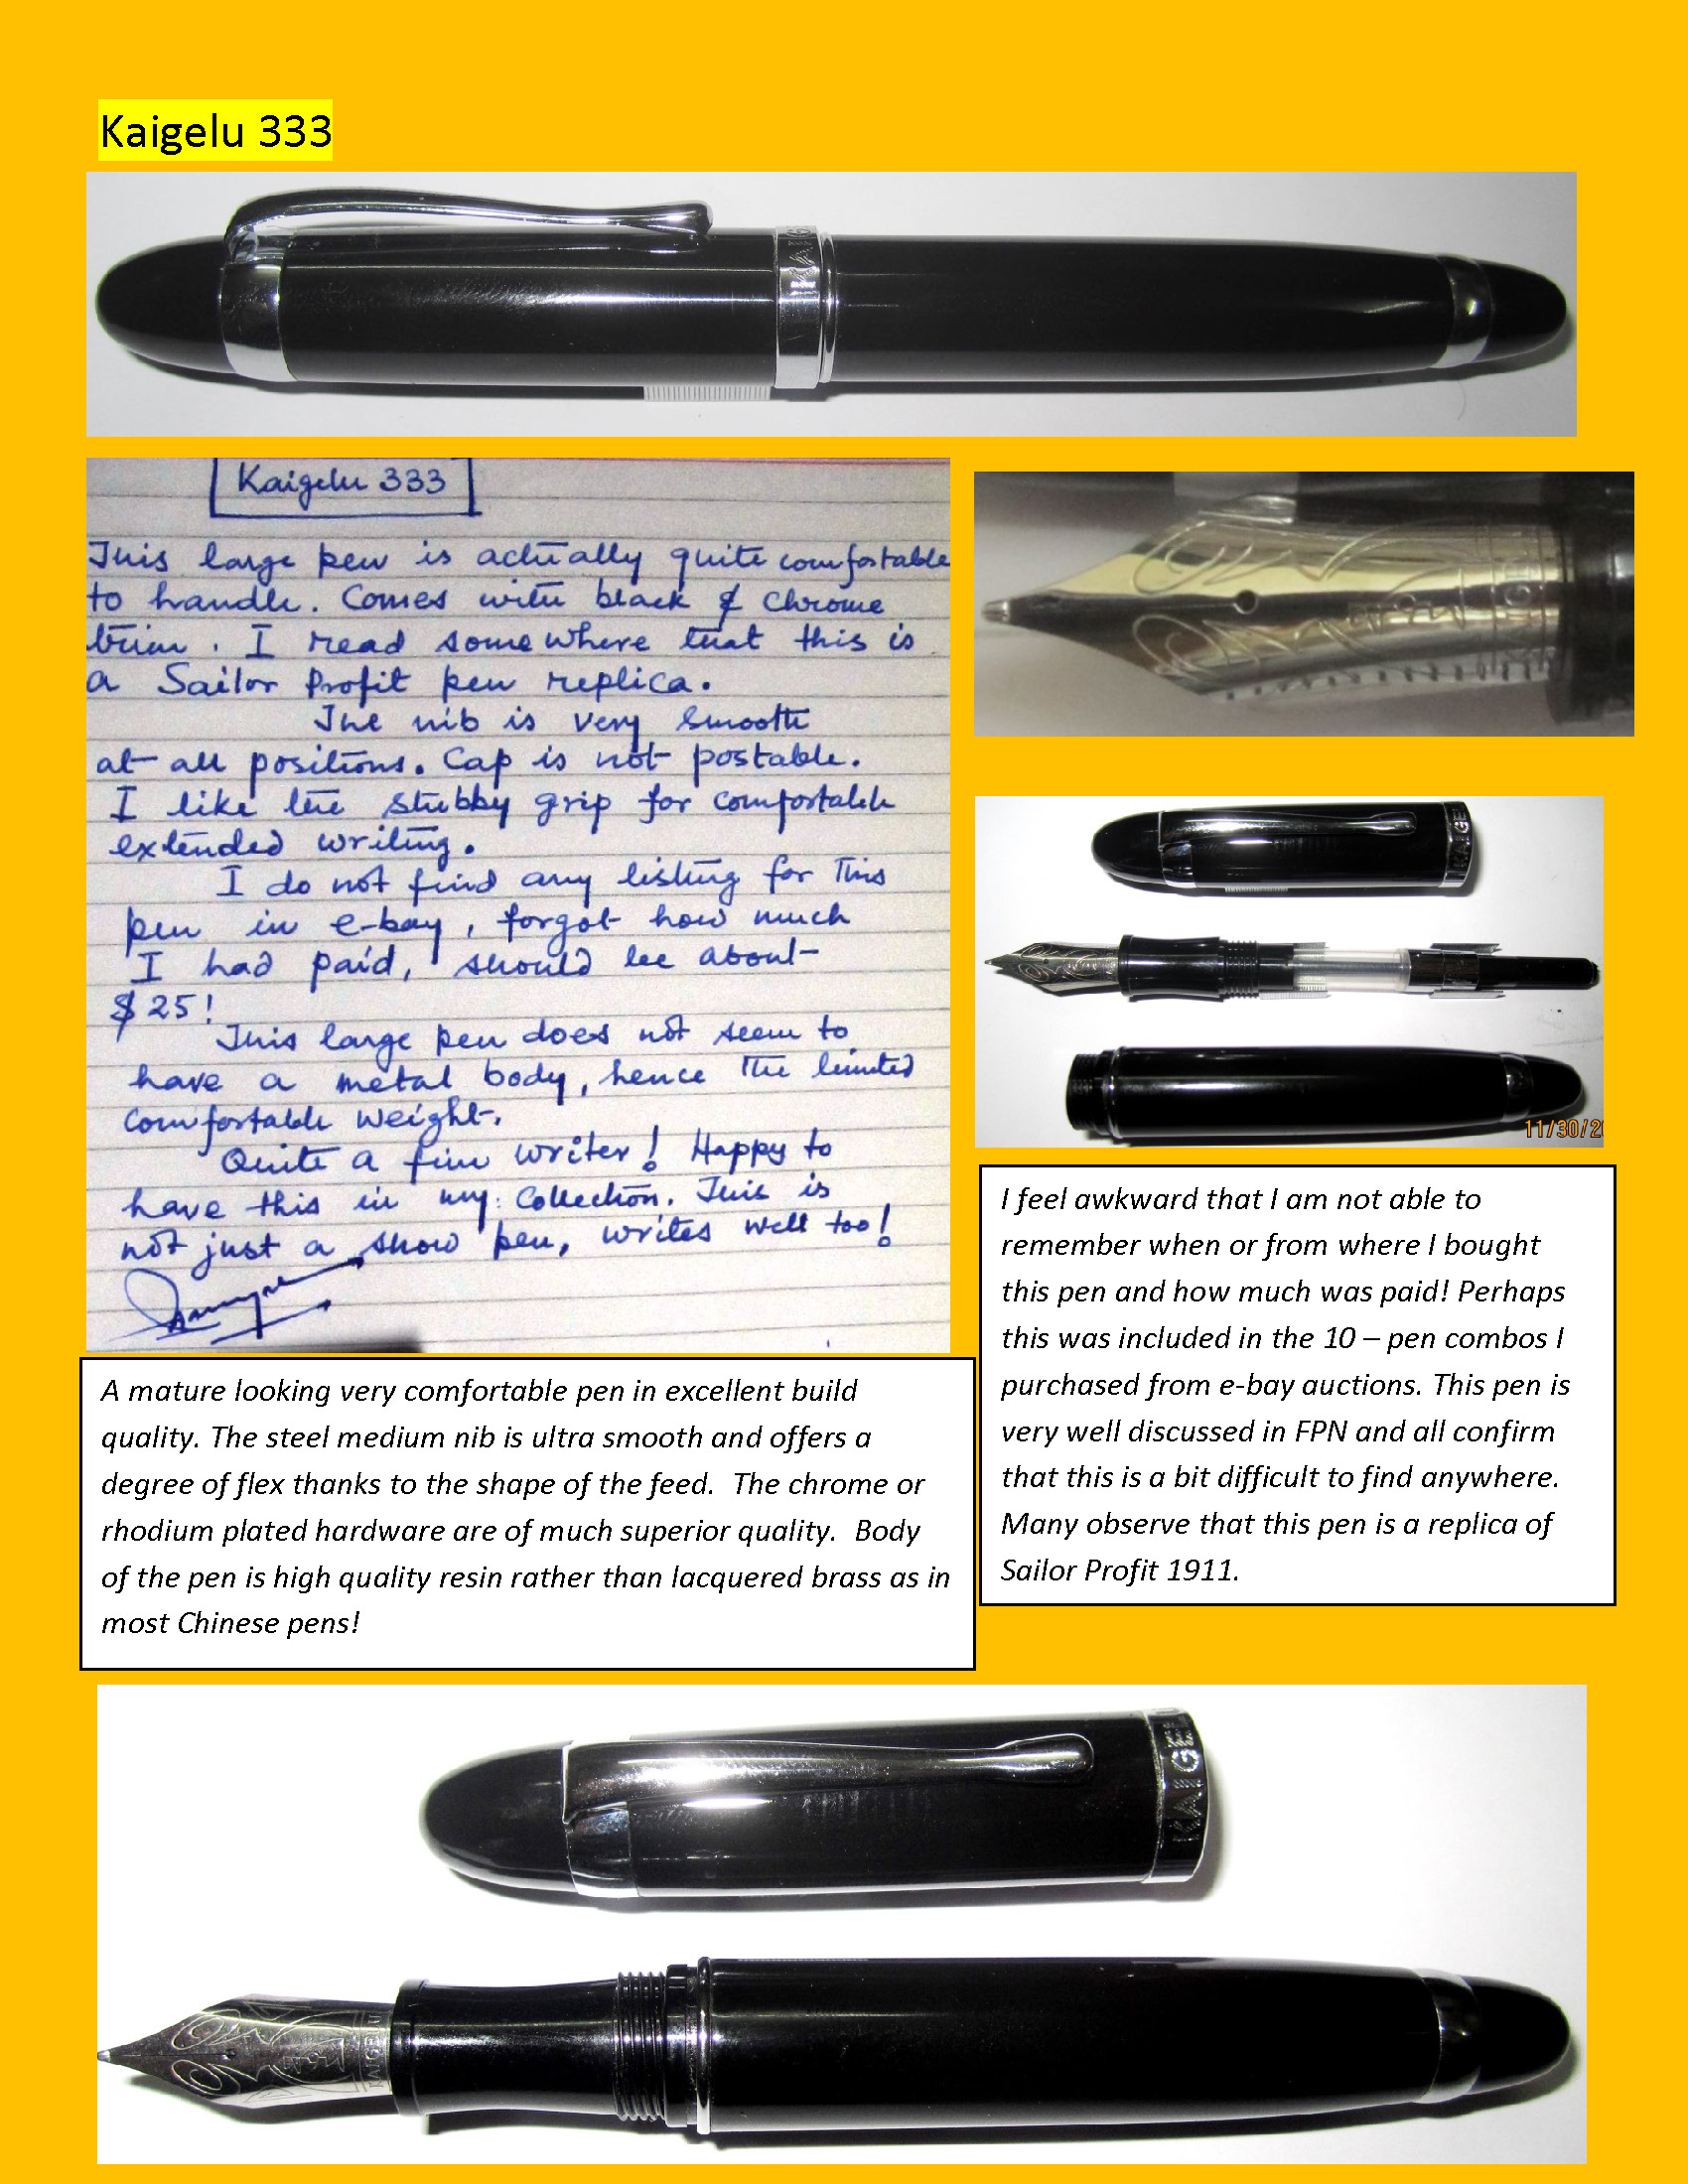 Kaigelu 333
KAIG
Kaigelu 333
This large pen is actually quite comfortable
to handle. Comes with black & chrome
trim. I read somewhere that this is
a Sailor Profit pen replica.
The nib is very smooth
at all positions. Cap is not postable.
I like the stubby grip for comfortable
extended writing.
I do not find any listing for this
pen in e-bay, forgot how much
I had paid, should be about
$25!
This large pen does not seem to
have a metal body, hence the limited
comfortable weight.
Quite a fine writer! Happy to
have this in my collection. This is
not just a show pen, writes well too!
KAIGE
11/30/20
I feel awkward that I am not able to
remember when or from where I bought
this pen and how much was paid! Perhaps
this was included in the 10 – pen combos I
purchased from e-bay auctions. This pen is
very well discussed in FPN and all confirm
that this is a bit difficult to find anywhere.
Many observe that this pen is a replica of
Sailor Profit 1911.
A mature looking very comfortable pen in excellent build
quality. The steel medium nib is ultra smooth and offers a
degree of flex thanks to the shape of the feed.  The chrome or
rhodium plated hardware are of much superior quality.  Body
of the pen is high quality resin rather than lacquered brass as in
most Chinese pens!
KAIGELU
KAIGELU